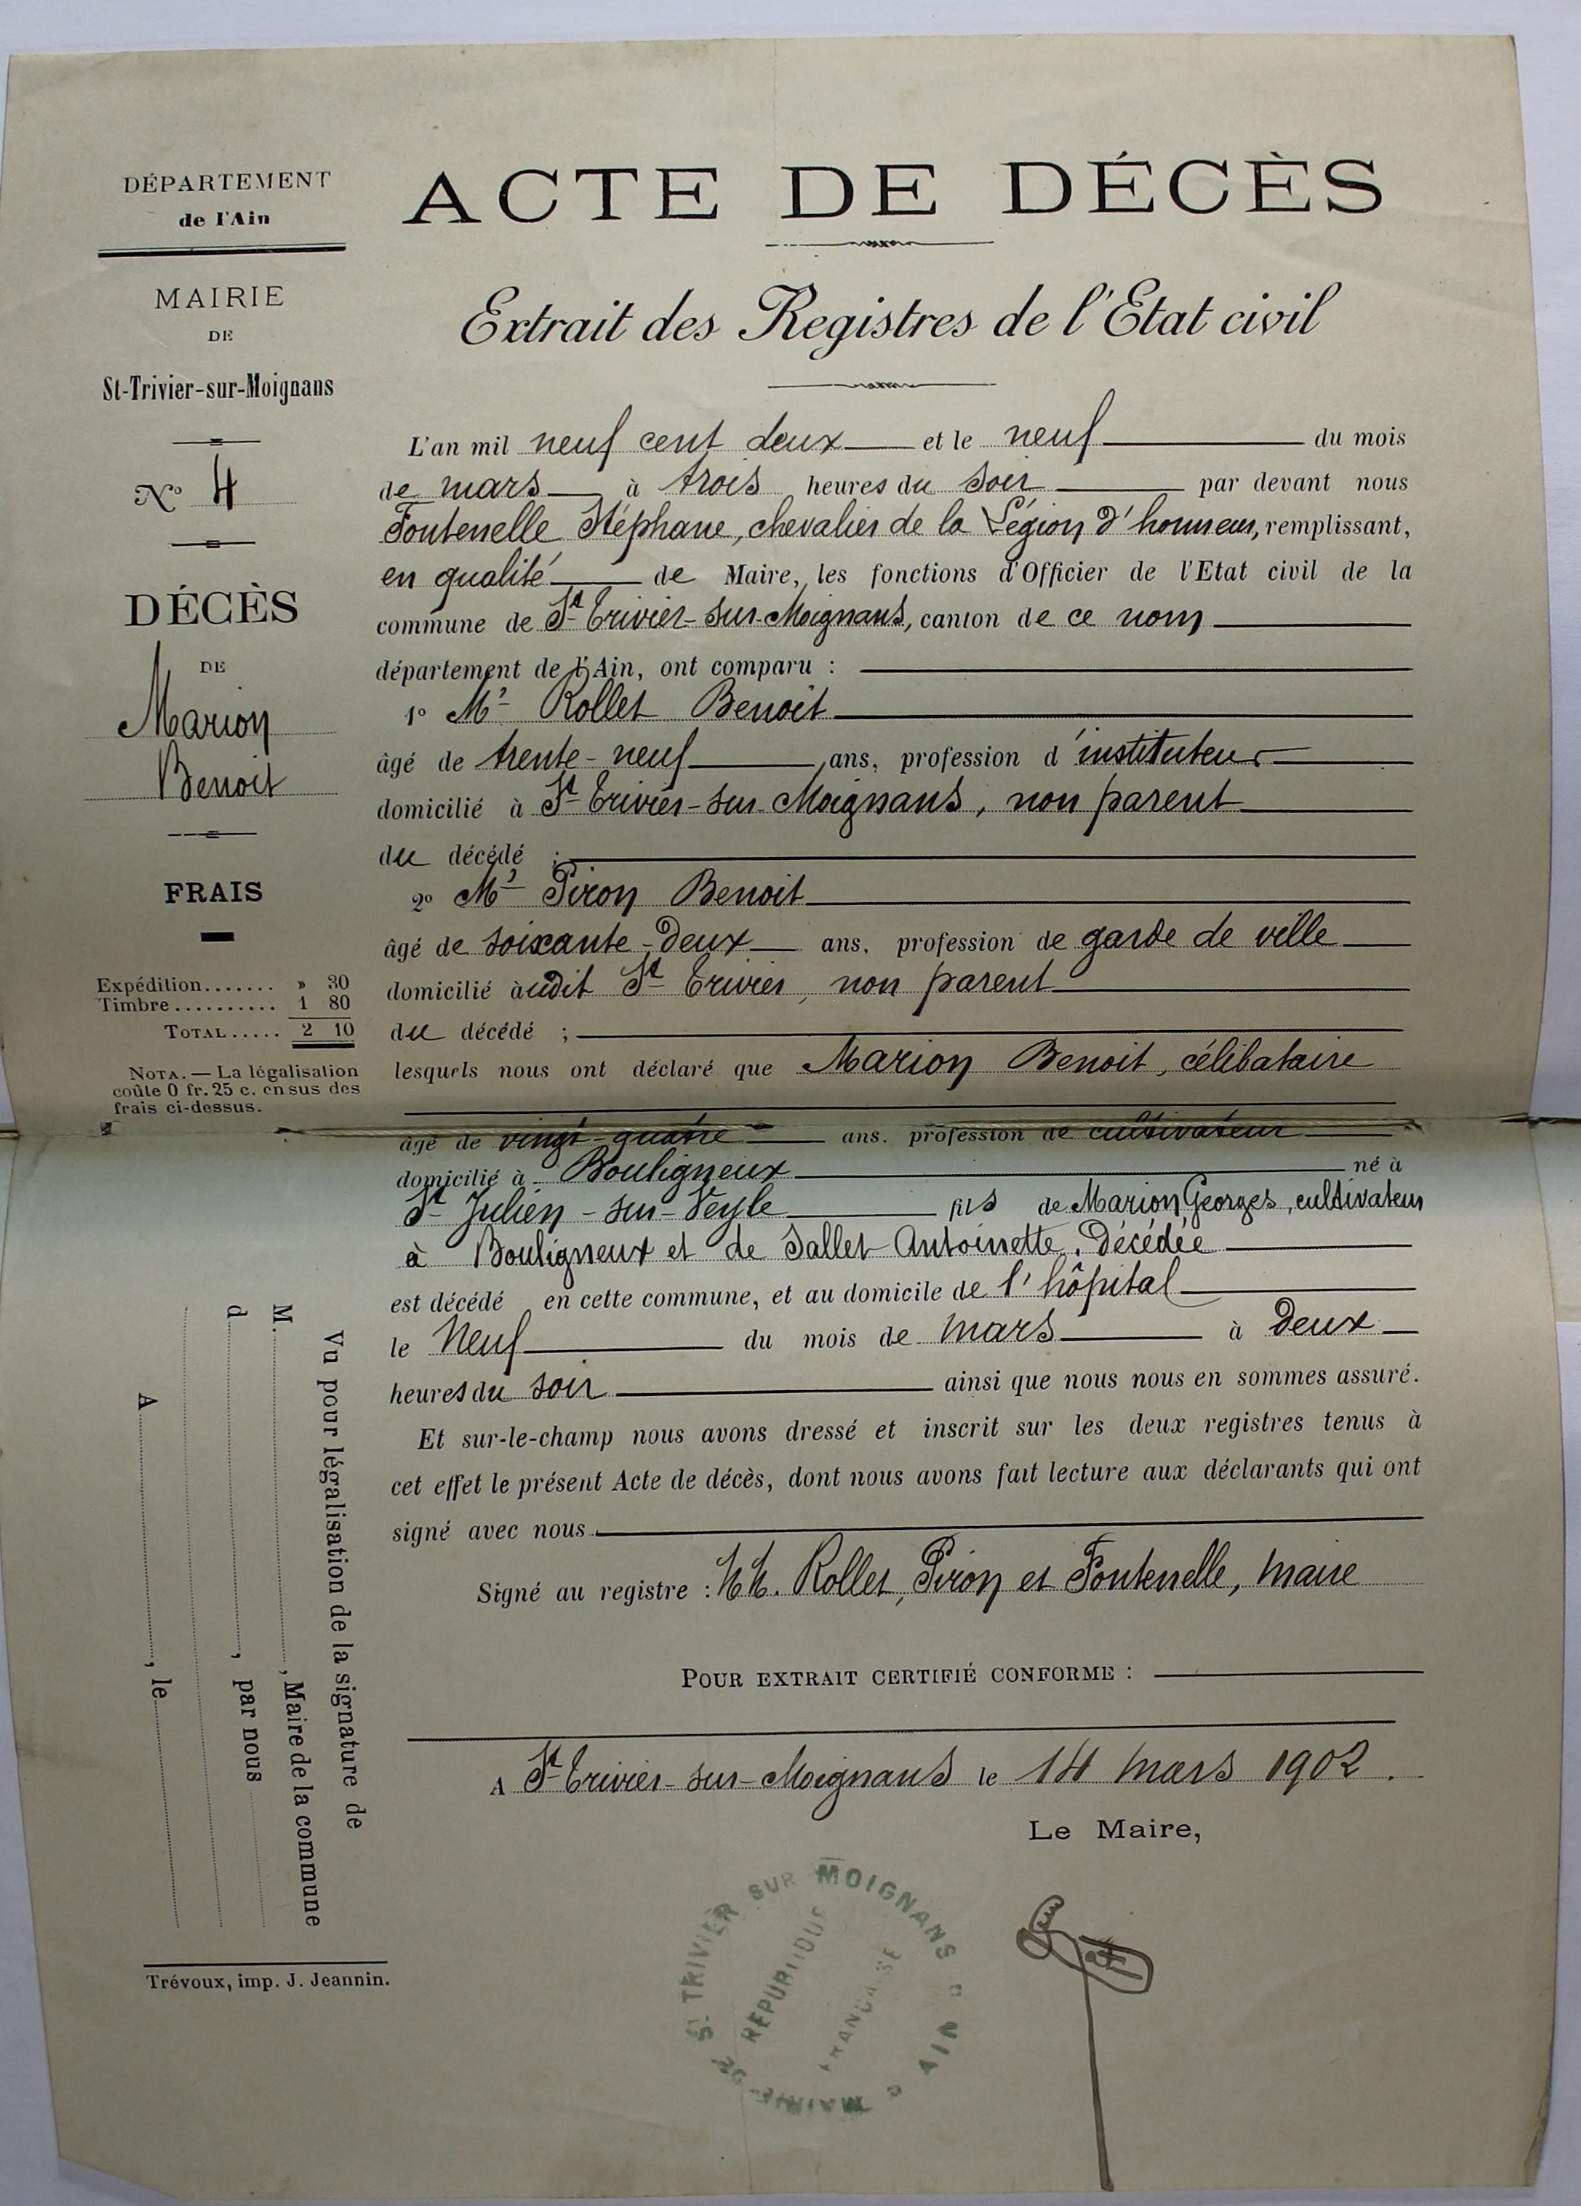 DÉPARTEMENT
de l'Ain
MAIRIE
DE
St-Trivier-sur-Moignans
N° 4
DÉCÈS
DE
Marion
Benoit
FRAIS
Expédition....... » 30
Timbre.......... 1 80
TOTAL..... 2 10
NOTA. — La légalisation
coûte 0 fr. 25 c. en sus des
frais ci-dessus.
ACTE DE DÉCÈS
Extrait des Registres de l'Etat civil
L'an mil neuf cent deux et le neuf du mois
de mars à trois heures du soir par devant nous
Fontenelle Stéphane, chevalier de la Légion d'honneur, remplissant,
en qualité de Maire, les fonctions d'Officier de l'Etat civil de la
commune de St Trivier-sur-Moignans, canton de ce nom
département de l'Ain, ont comparu :
1° Mr Rollet Benoit
âgé de trente-neuf ans, profession d'instituteur
domicilié à St Trivier-sur-Moignans, non parent
du décédé ;
2° Mr Piron Benoit
âgé de soixante-deux ans, profession de garde de ville
domicilié audit St Trivier, non parent
du décédé ;
lesquels nous ont déclaré que Marion Benoit, célibataire
âgé de vingt-quatre ans, profession de cultivateur
domicilié à Bouligneux né à
St Julien-sur-Veyle fils de Marion Georges, cultivateur
à Bouligneux et de Sallet Antoinette, décédée
est décédé en cette commune, et au domicile de l'hôpital
le neuf du mois de mars à deux
heures du soir ainsi que nous nous en sommes assuré.
Et sur-le-champ nous avons dressé et inscrit sur les deux registres tenus à
cet effet le présent Acte de décès, dont nous avons fait lecture aux déclarants qui ont
signé avec nous.
Signé au registre : MM. Rollet, Piron et Fontenelle, maire
POUR EXTRAIT CERTIFIÉ CONFORME :
A St Trivier-sur-Moignans le 14 mars 1902.
Le Maire,
Vu pour légalisation de la signature de
M. , Maire de la commune
d , par nous
A , le
Trévoux, imp. J. Jeannin.
MAIRIE DE ST TRIVIER SUR MOIGNANS AIN
REPUBLIQUE
FRANCAISE